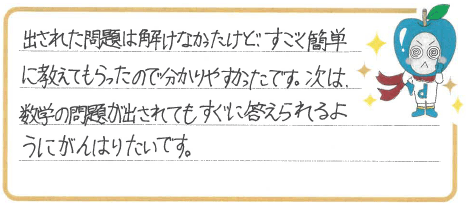 出された問題は解けなかったけど、すごく簡単
に教えてもらったので分かりやすかったです。次は、
数学の問題が出されてもすぐに答えられるよ
うにがんはりたいです。
d